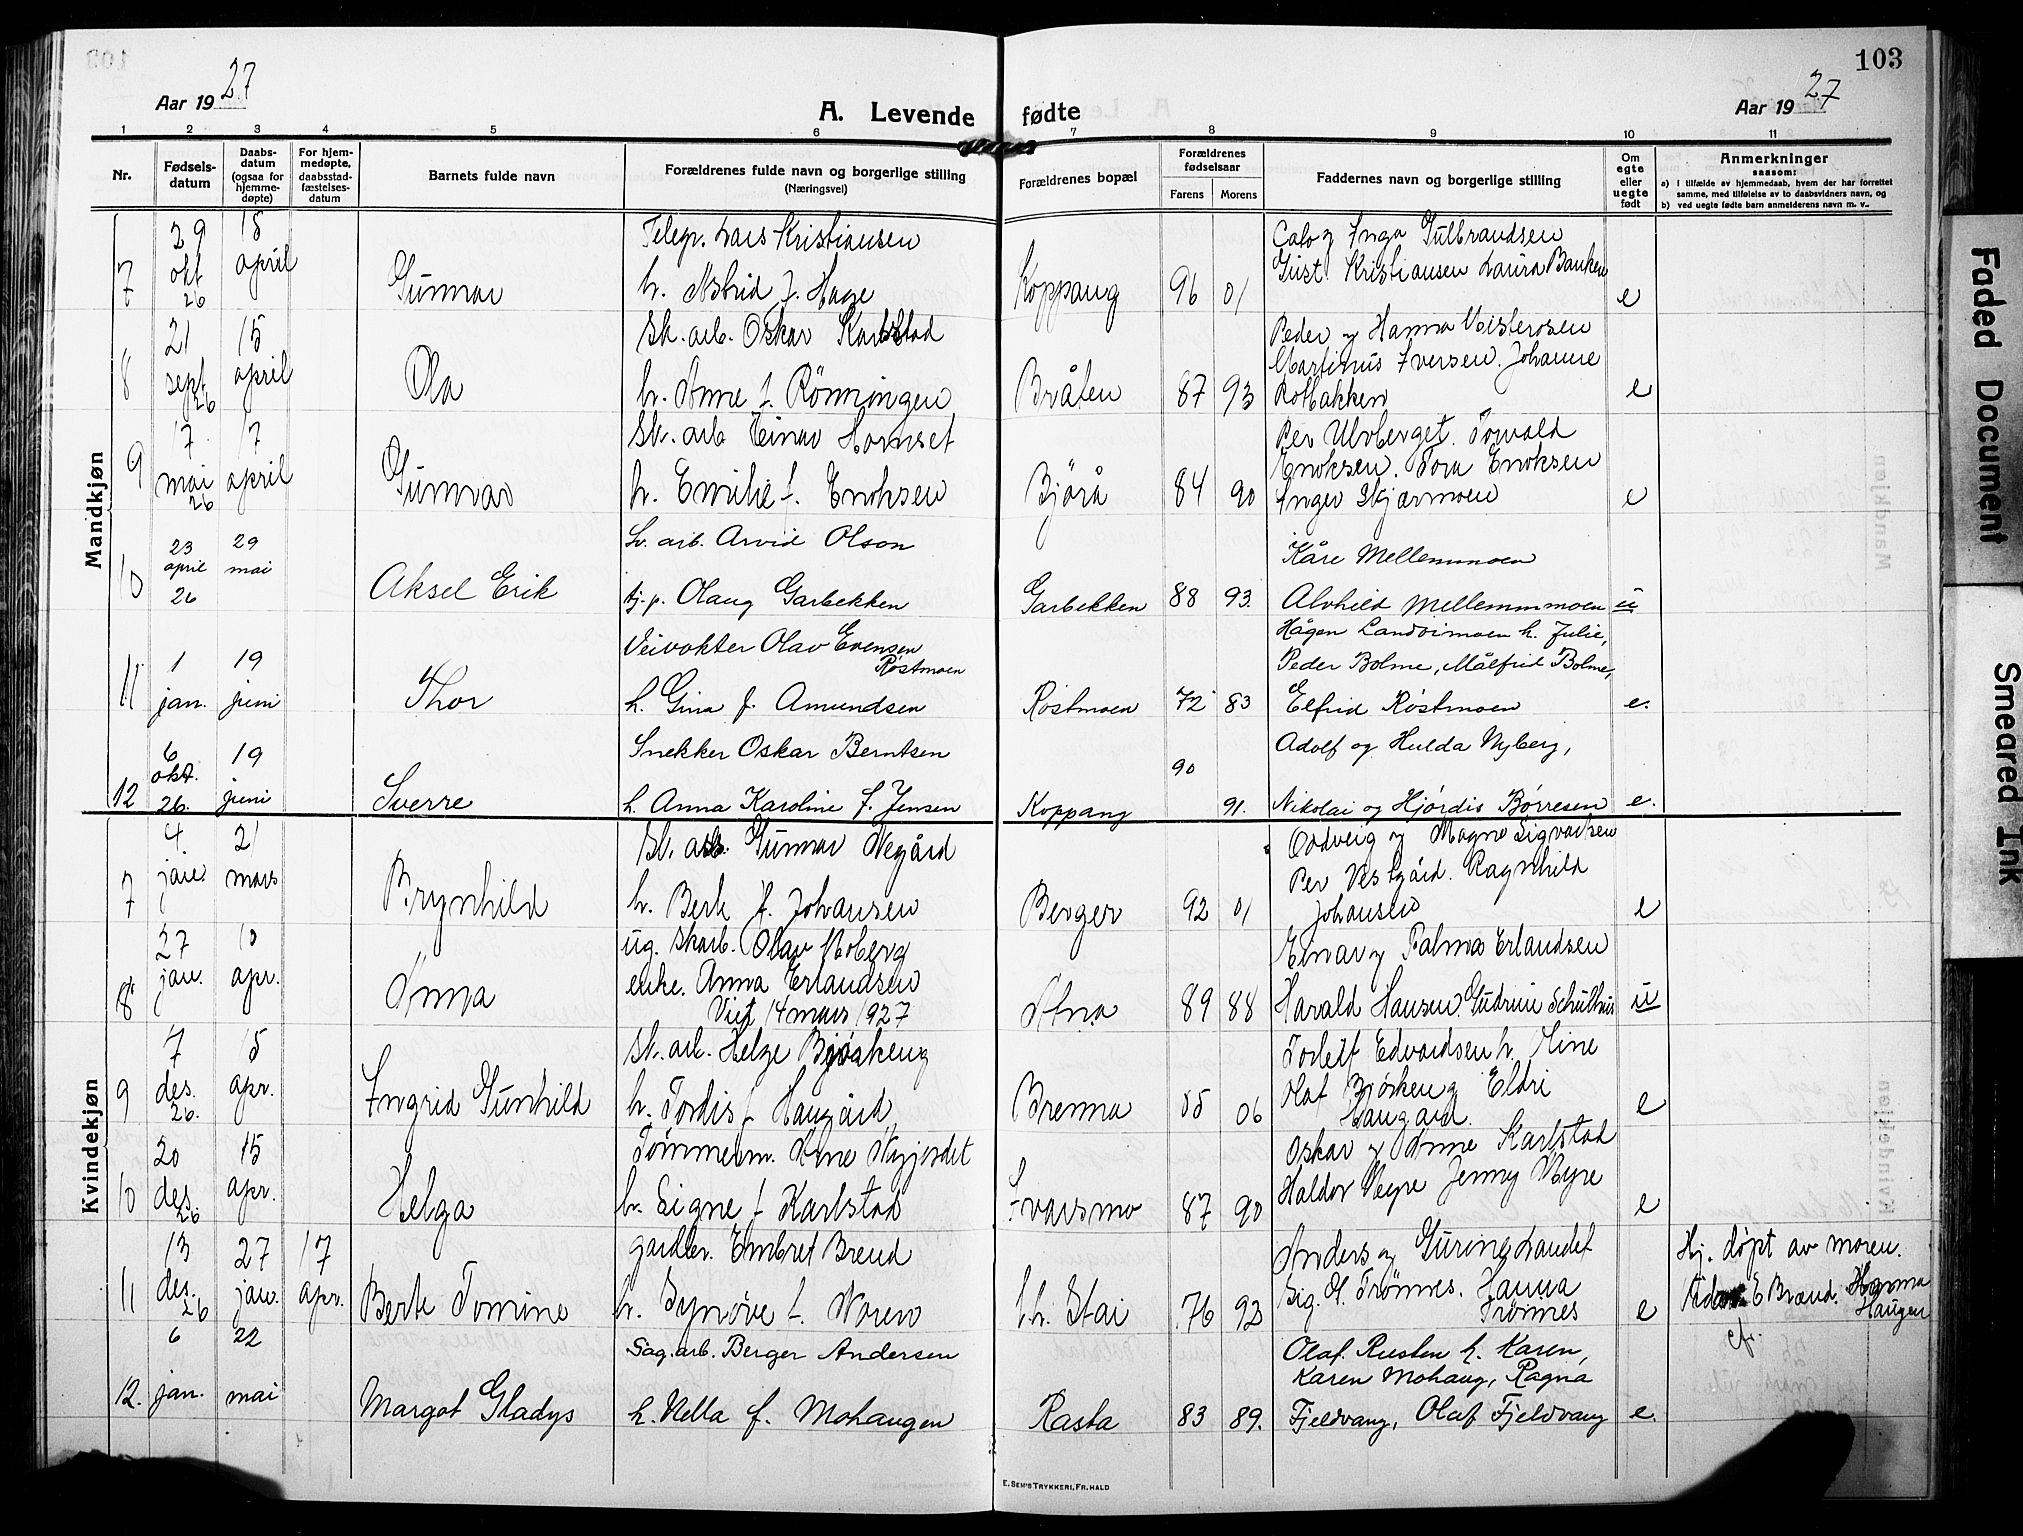 103
Aar 1927
A. Levende fødte
Aar 1927
1 2 3 4 5 6 7 8 9 10 11
Nr.
Fødsels-datum
Daabs-datum (ogsaa for hjemme-døpte)
For hjem-medøpte, daabsstad-fæstelses-datum
Barnets fulde navn
Forældrenes fulde navn og borgerlige stilling (Næringsvei)
Forældrenes bopæl
Forældrenes fødselsaar
Farens
Morens
Faddernes navn og borgerlige stilling
Om egte eller uegte født
Anmerkninger
saasom:
a) i tilfælde av hjemmedaab, hvem der har forrettet samme, med tilføielse av to daabsvidners navn, og
b) ved uegte fødte barn anmelderens navn m. v..
Mandkjøn
7 29 okt 26 18 april Gunnar Telegr. Lars Kristiansen
h. Astrid f. Hage Koppang 96 01 Inga Gulbrandsen
Gust. Kristiansen Laura Banken e
8 21 sept. 26 15 april Ola Sk. arb. Oskar Karlstad
h. Anne f. Rönningen Bråten 87 93 Peder og Hanna Veisterosen
Martinus Iversen. Johanne
Rotbakken e
9 17 mai 26 17 april Gunnar Sk. arb Einar Hornset
h. Emilie f. Enoksen Bjørå 84 90 Per Ulvberget. Torvald
Enoksen. Tora Enoksen
Inger Skjærmoen e
10 23 april 26 29 mai Aksel Erik Sk. arb. Arvid Olson
tj. p. Olaug Garbekken Garbekken 88 93. Kåre Mellemmoen
Alvhild Mellemmoen u
11 1 jan. 19 juni Thor Veivokter Olav Evensen
Røstmoen
h. Gina f. Amundsen Røstmoen 72 83 Hågen Landsimoen h. Julie,
Peder Bolme, Målfrid Bolme,
Elfrid Røstmoen e.
12 6 okt. 26. 19 juni Sverre Snekker Oskar Berntsen
h. Anna Karoline f. Jensen Koppang 90 91. Adolf og Hulda Nyberg,
Nikolai og Hjördis Børresen e.
Kvindekjøn
7 4. jan. 21 mars Brynhild Sk. arb. Gunnar Negård
h. Berte f. Johansen Berger 92 01 Oddveig og Magne Sigvartsen
Per Vestgård. Ragnhild
Johansen e
8 27 jan. 10 apr. Anna ug. skarb. Olav Moberg
enke. Anna Erlandsen
Viet 14 mars 1927 Atna 89 88 Einar og Palma Erlandsen
Harald Hansen. Gudrun Schulthus u
9 7 des. 26. 15 apr. Ingrid Gunhild Sk. arb. Helge Bjøråkeng
h. Tordis f. Haugård Brenna 05 06 Torleif Edvardsen h. Mine
Olaf Bjørkeng Eldri
Haugård. e
10 20 des. 26 15 apr. Helga Tömmerm. Arne Nygjordet
h. Signe f. Karlstad Evarsmo 87 90 Oskar og Anne Karlstad
Haldor Myre Jenny Myre e
11 13 des. 26 27 jan. 17 apr. Berte Tomine gardbr. Embret Brend
h. Synøve f. Noren St. Stai 76 92 Anders og Guring Landet
Sig. O. Trønnes. Hanna
Trønnes e Hj. døpt av moren.
E Brænd. Hanna
Haugen
cfr.
12. 6 jan. 22 mai Margot Gladys Sag. arb. Berger Andersen
h. Nella f. Mohaugen Rasta 83 89. Olaf Rusten h. Karen,
Karen Mohaug, Ragna
Fjeldvang, Olaf Fjeldvang e.
E. SEM'S TRYKKERI, FR.HALD
Faded Document
Smeared Ink